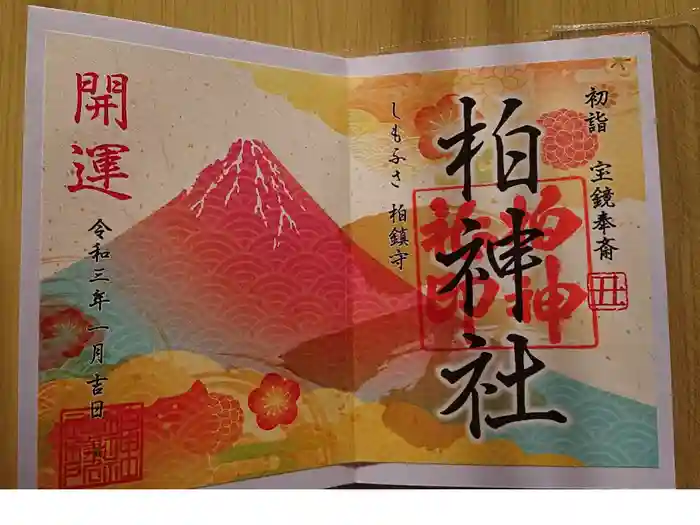 初詣 宝鏡奉斎
丑
柏神社
柏神
社印
しもふさ 柏鎮守
開運
令和三年一月吉日